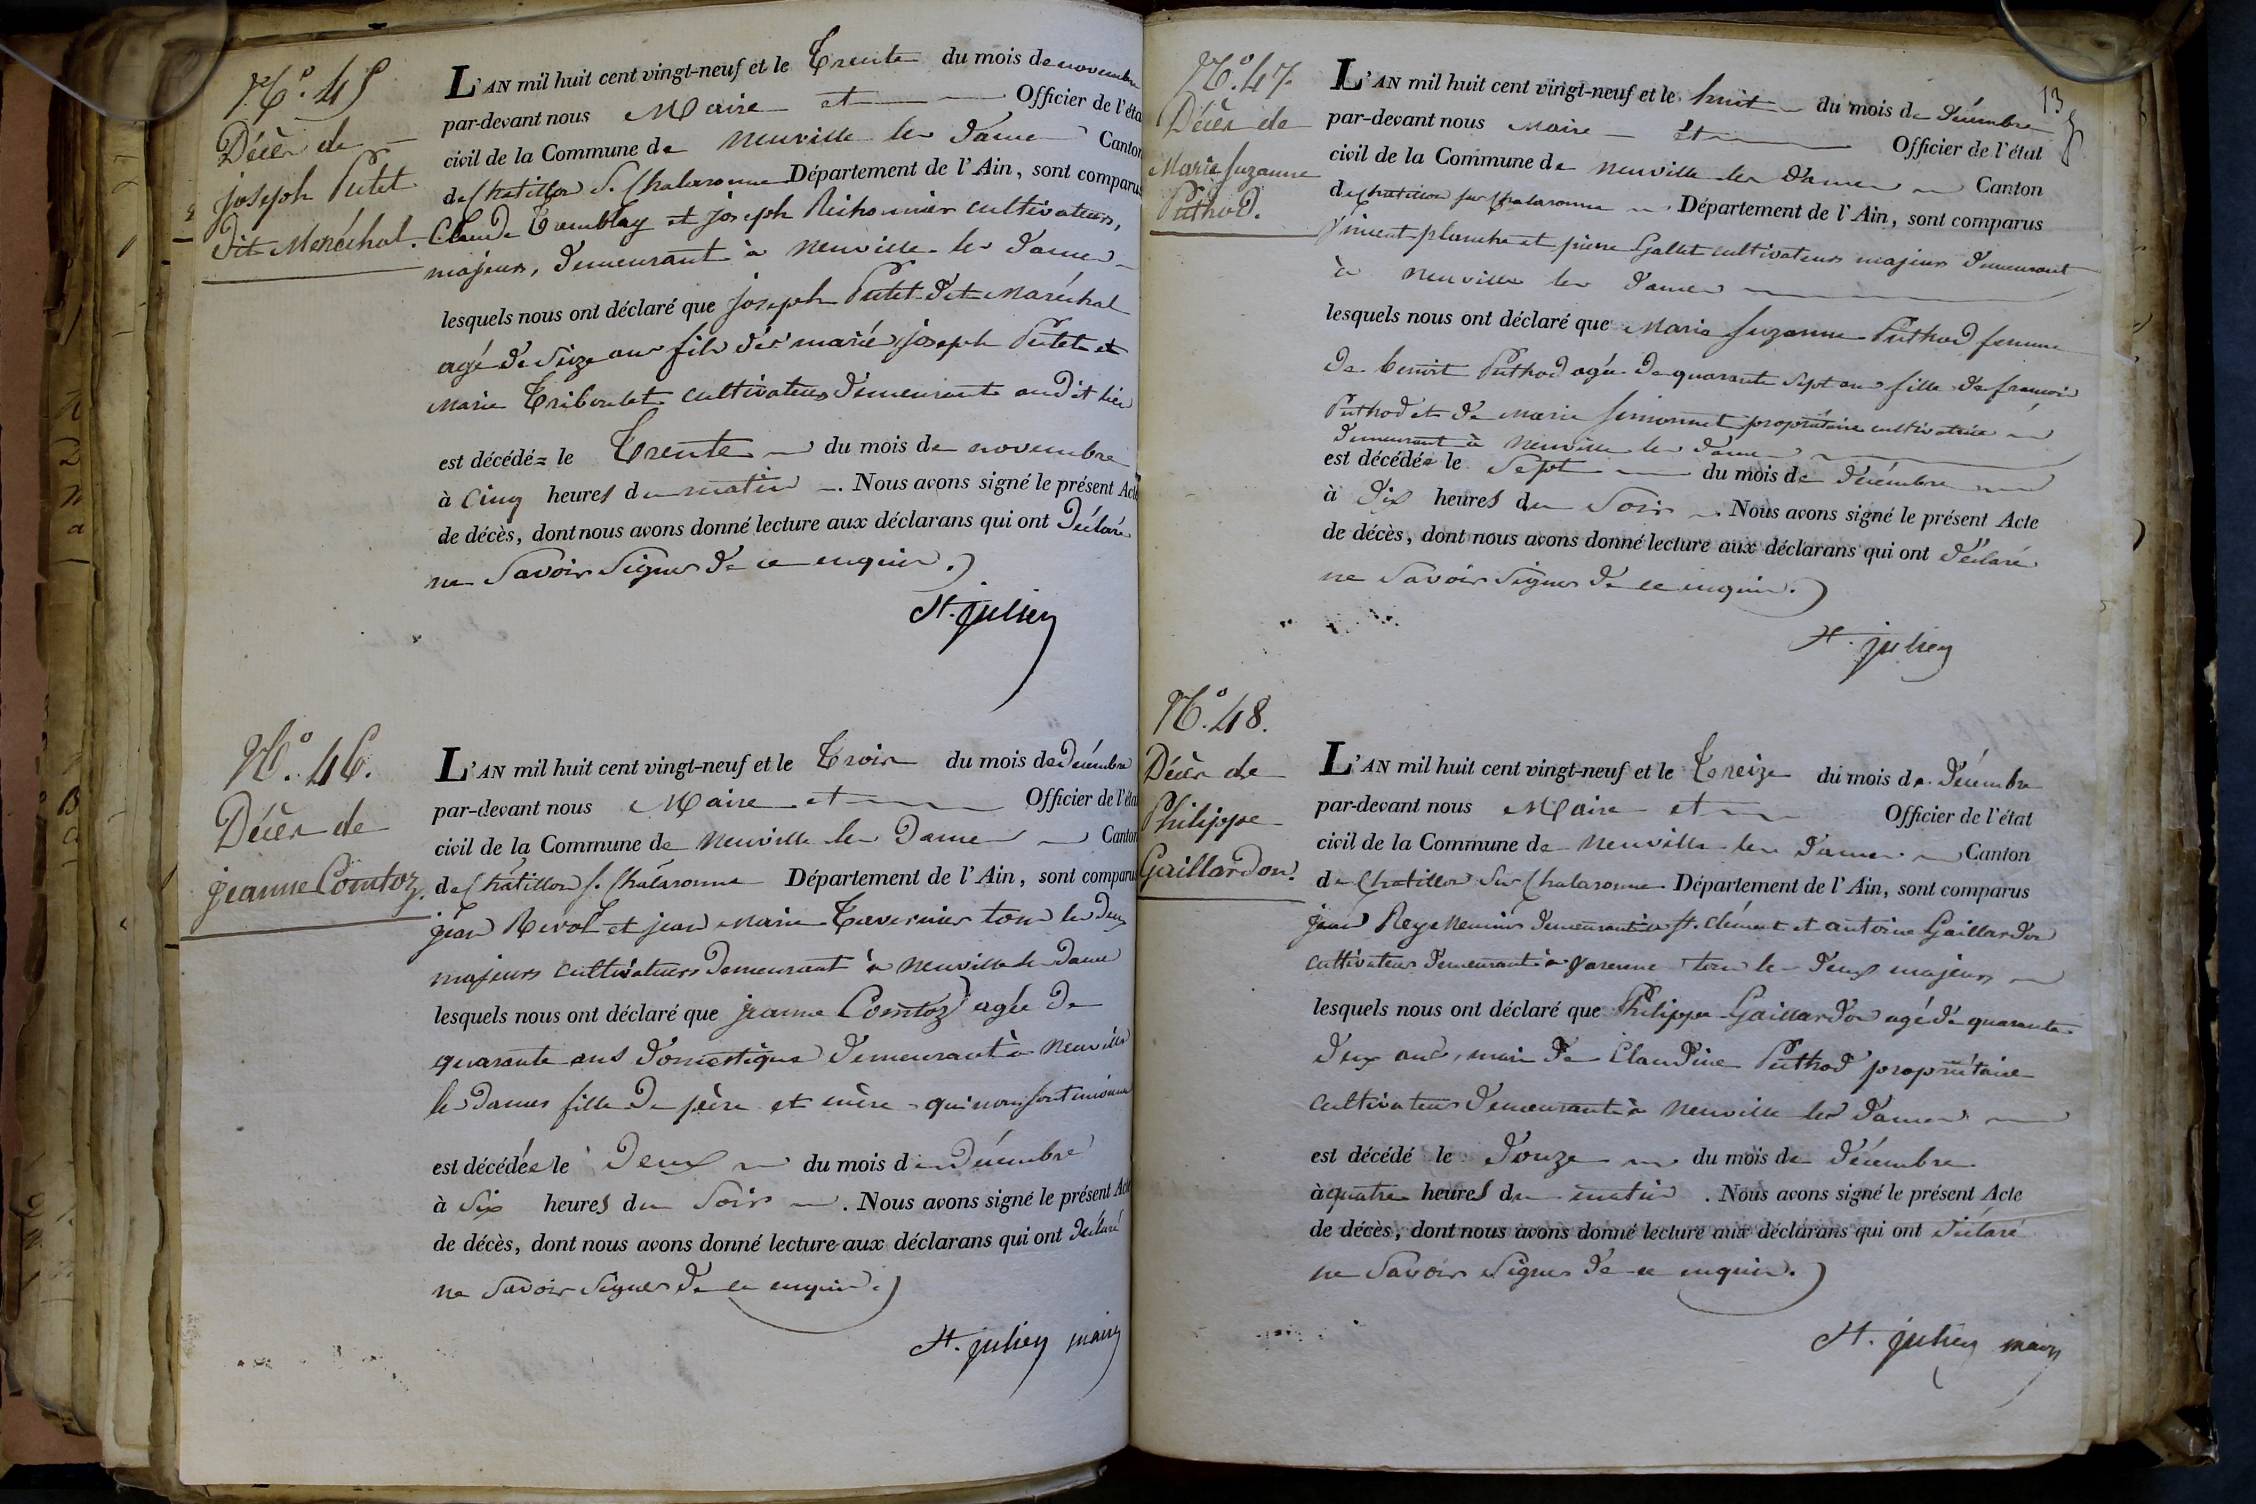 N.º 45
Décès de
joseph Putet
dit Maréchal.
L'AN mil huit cent vingt-neuf et le Trente du mois de novembre
par-devant nous Maire et Officier de l'éta
civil de la Commune de neuville les dames Canton
de Chatillon S. Chalaronne Département de l'Ain, sont comparus
Claude Tremblay et joseph cultivateurs,
majeurs, demeurant à neuville les dames
lesquels nous ont déclaré que joseph Putet dit Maréchal
agé de Seize ans fils des mariés joseph Putet et
Marie Triboulet cultivateurs demeurants audit lieu
est décédé le Trente du mois de novembre
à Cinq heures du matin. Nous avons signé le présent Acte
de décès, dont nous avons donné lecture aux déclarans qui ont déclaré
ne Savoir Signer de ce enquis.
St. julien
N.º 46.
Décès de
jeanne Comtoz.
L'AN mil huit cent vingt-neuf et le Trois du mois de Décembre
par-devant nous Maire et Officier de l'état
civil de la Commune de neuville les Dames Canton
de Châtillon S. Châlaronne Département de l'Ain, sont comparus
jean Revol et jean Marie Tavernier tous les deux
majeurs cultivateurs Demeurant à neuville les Dames
lesquels nous ont déclaré que jeanne Comtoz agée De
quarante ans domestique demeurant à neuville
les Dames fille De père et mère qui nous sont inconnus
est décédée le Deux du mois de Décembre
à Six heures du Soir. Nous avons signé le présent Acte
de décès, dont nous avons donné lecture aux déclarans qui ont déclaré
ne Savoir Signer de ce enquis.
St. julien maire
13
N.º 47.
Décès de
Marie Suzanne
Puthod.
L'AN mil huit cent vingt-neuf et le huit du mois de décembre
par-devant nous Maire et Officier de l'état
civil de la Commune de neuville les dames Canton
de Chatillon sur Chalaronne Département de l'Ain, sont comparus
Vincent planche et pierre Gallet cultivateurs majeurs demeurant
à neuville les dames
lesquels nous ont déclaré que Marie Suzanne Puthod femme
de benoit Puthod agée de quarante Sept ans fille de françois
Puthod et de Marie Simonnet propriétaire cultivatrice
demeurant à neuville les dames
est décédée le Sept du mois de décembre
à dix heures du Soir. Nous avons signé le présent Acte
de décès, dont nous avons donné lecture aux déclarans qui ont déclaré
ne Savoir Signer de ce enquis.
St. julien
N.º 48.
Décès de
Philippe
Gaillardon.
L'AN mil huit cent vingt-neuf et le Treize du mois de décembre
par-devant nous Maire et Officier de l'état
civil de la Commune de neuville les dames Canton
de Chatillon Sur Chalaronne Département de l'Ain, sont comparus
jean Rey demeurant à St. clément et antoine Gaillardon
cultivateur demeurant à Varenne tous les deux majeurs
lesquels nous ont déclaré que Philippe Gaillardon agé de quarante
deux ans, mari de Claudine Puthod propriétaire
cultivateur demeurant à neuville les dames
est décédé le douze du mois de décembre
à quatre heures du matin. Nous avons signé le présent Acte
de décès, dont nous avons donné lecture aux déclarans qui ont déclaré
ne Savoir Signer de ce enquis.
St. julien maire